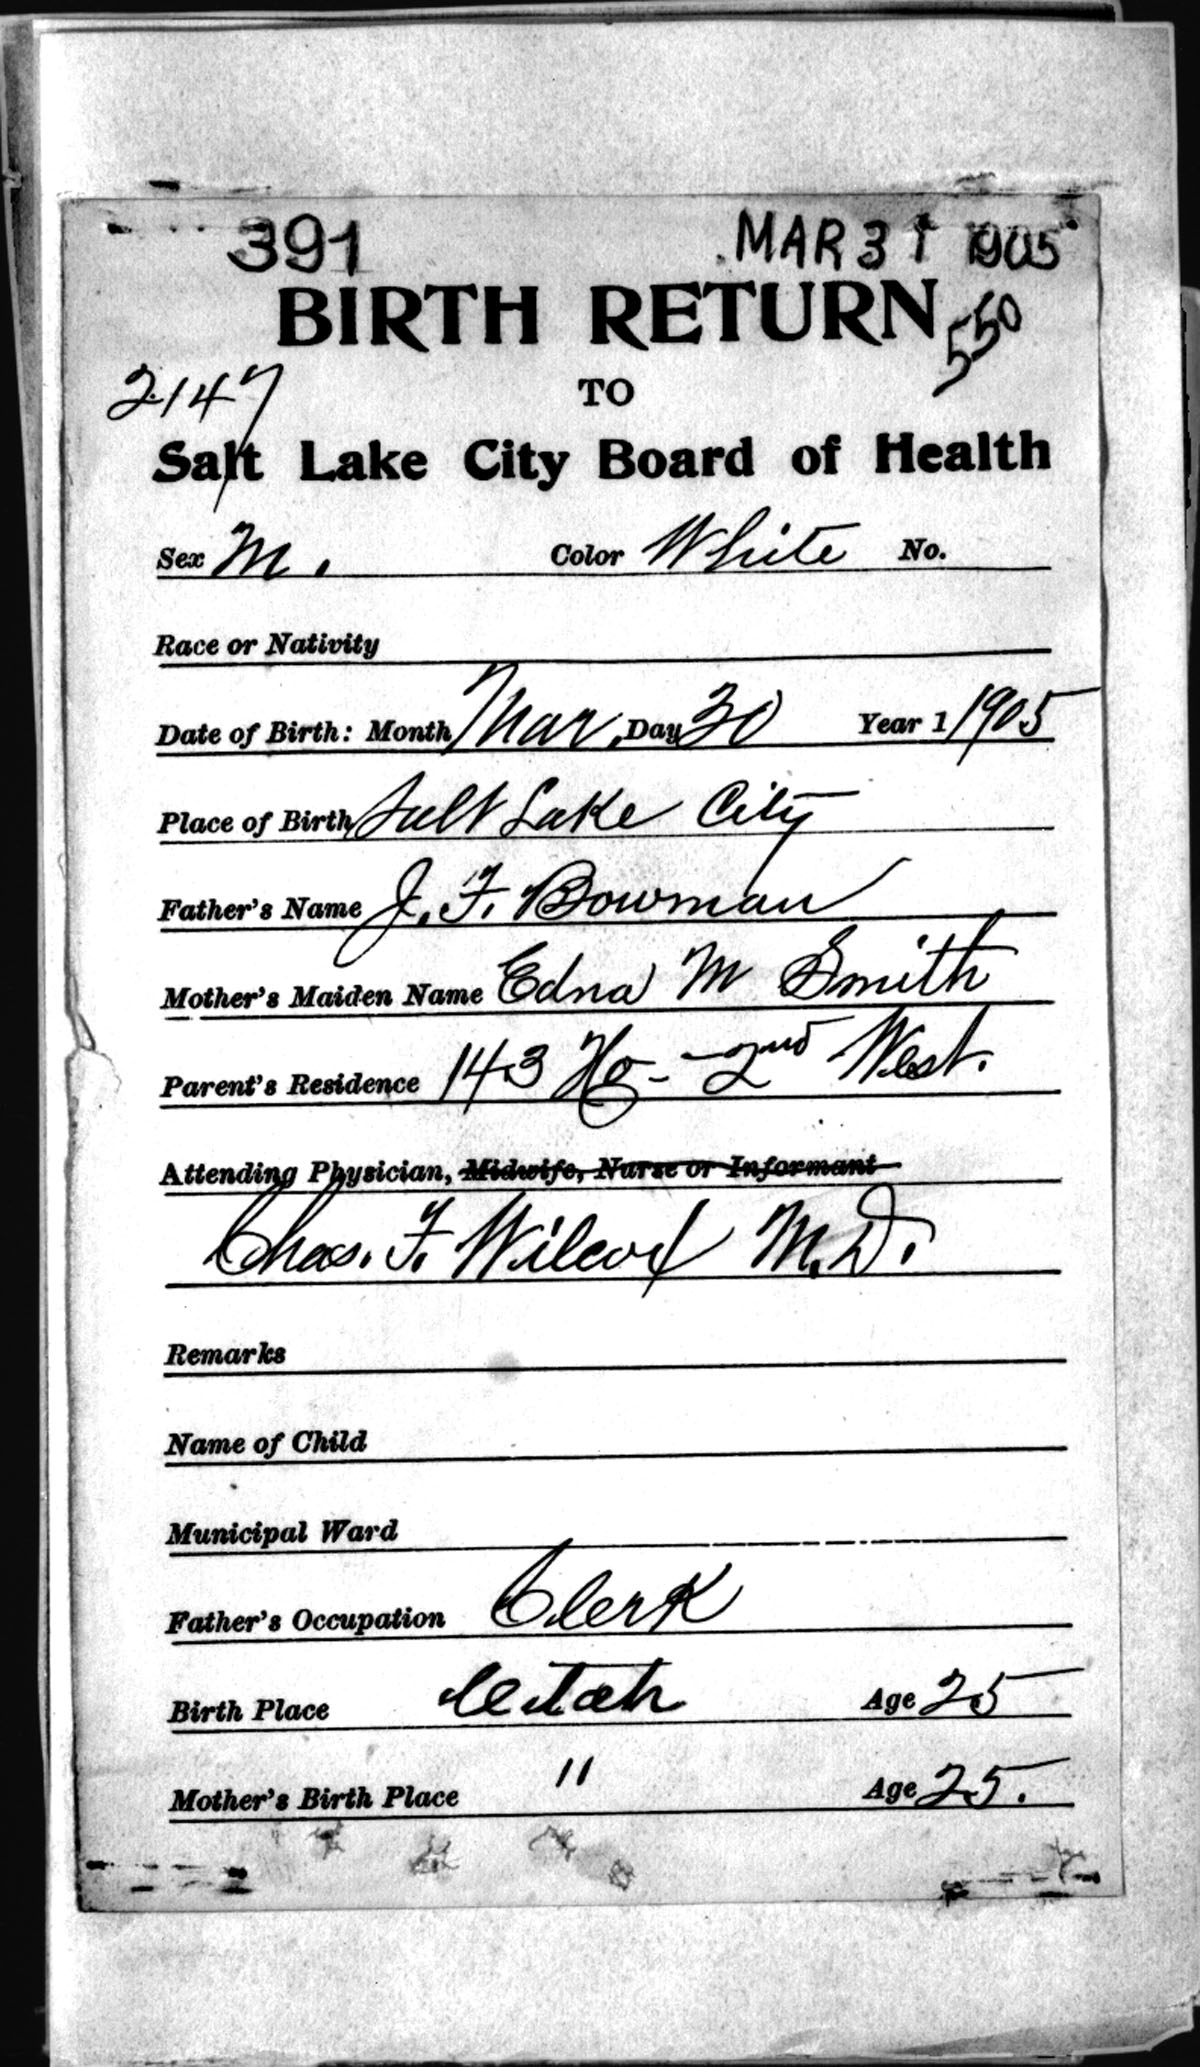 391 MAR 31 1905
BIRTH RETURN 550
2147 TO
Salt Lake City Board of Health
Sex M. Color White No.
Race or Nativity
Date of Birth: Month Mar. Day 30 Year 1 1905
Place of Birth Salt Lake City
Father's Name J. F. Bowman
Mother's Maiden Name Edna M Smith
Parent's Residence 143 No - 2nd West.
Attending Physician, Midwife, Nurse or Informant
Chas. F. Wilcox M.D.
Remarks
Name of Child
Municipal Ward
Father's Occupation Clerk
Birth Place Utah Age 25
Mother's Birth Place " Age 25.